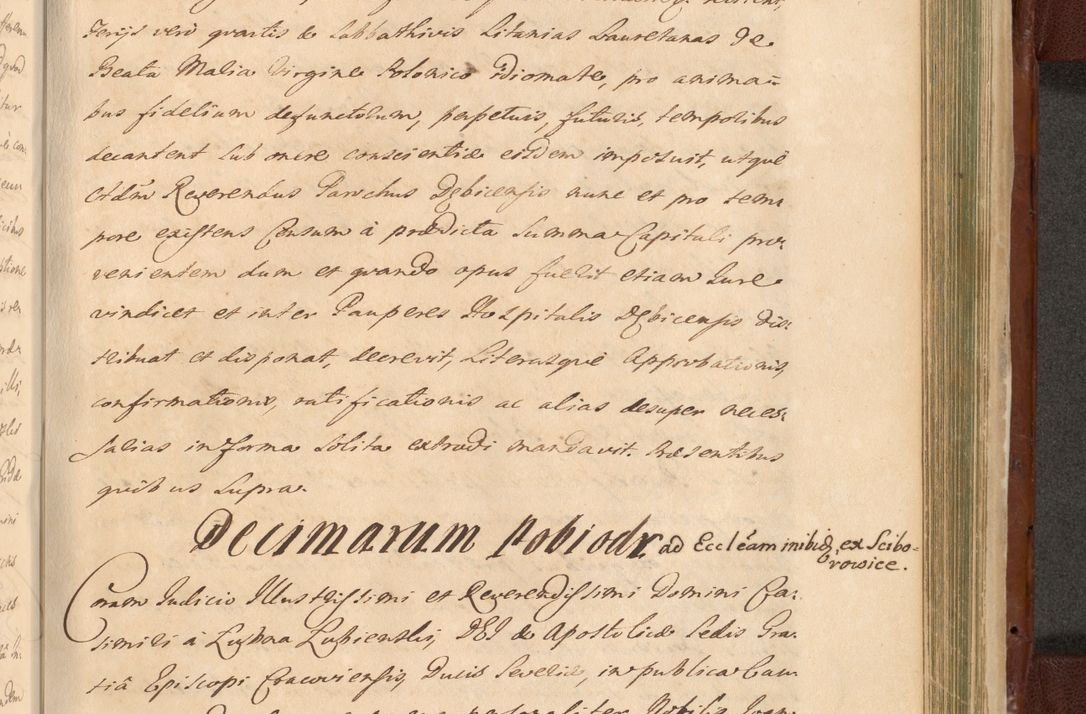 Ferijs verò quartis & Sabbathivis Litanias Lauretanas De
Beata Maria Virgine Polonico idiomate, pro anima=
bus fidelium defunctorum, perpetuis, futuris, temporibus
decantent sub onere conscientiæ eisdem imposuit, utquè
eidem Reverendus Parochus Dębicensis nunc et pro tem
pore existens Censum à prædicta Summa Capitali pro=
venientem dum et quando opus fuerit etiam Iure
vindicet et inter Pauperes Hospitalis Dębicensis dis:
tribuat et disponat, decrevit, Literasquè Approbationis,
confirmationis, ratificationis ac alias desuper neces:
sarias in forma solita extradi mandavit. Præsentibus
quibus supra.
Decimarum Pobiodr ad Ecclẽam inibiq ex Scibo=
rowice.
Coram Iudicio Illustrissimi et Reverendissimi Domini Ca:
simiri à Łubna Łubienski, DEI & Apostolicæ Sedis Gra:
tiâ Episcopi Cracoviensis, Ducis Severiæ, in publica Cau
personaliter Nobilis